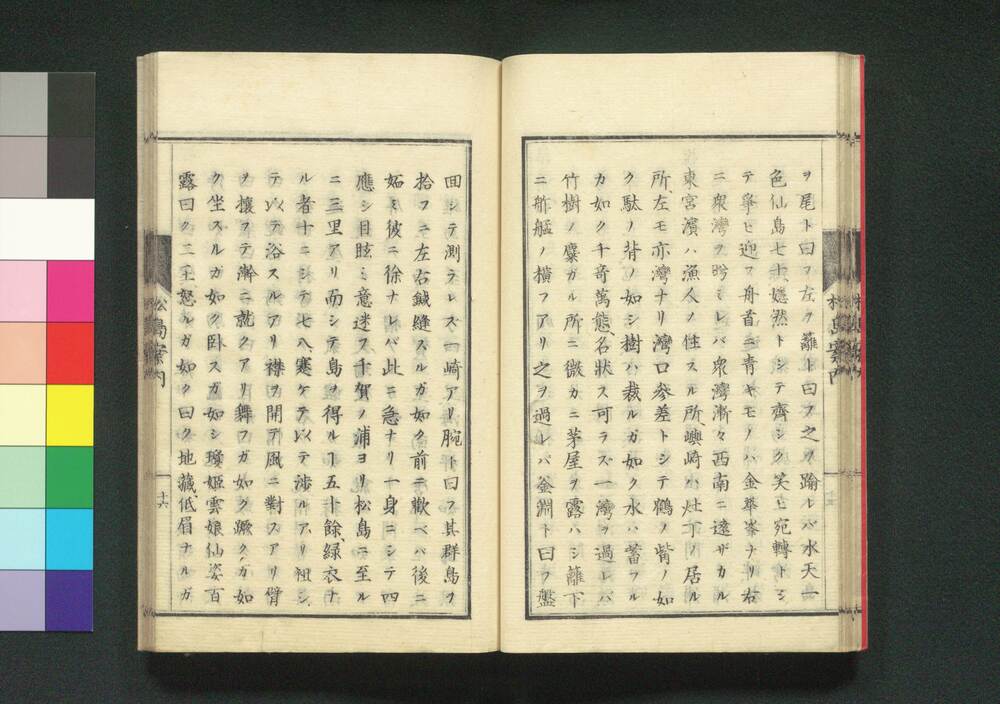 ヲ尾ト曰フ左ヲ籬ト曰フ之ヲ踰ルバ水天一
色仙島七十嫣然トシテ齊シク笑ヒ宛轉トシ
テ爭ヒ迎フ舟首ニ青キモノハ金華峯ナリ右
ニ衆灣ヲ眄ミレバ衆灣漸々西南ニ遠ザカル
東宮濱ハ漁人ノ住スル所、嶼崎ハ灶丁ノ居ル
所、左モ亦灣ナリ灣口參差トシテ鶴ノ觜ノ如
ク駄ノ背ノ如シ樹ハ裁ルガ如ク水ハ蓄フル
カ如ク千奇萬態、名狀ス可ラズ一灣ヲ過レバ
竹樹ノ麋ガル所ニ微カニ茅屋ヲ露ハシ籬下
ニ舴艋ノ横フアリ之ヲ過レバ釜淵ト曰フ盤
回シテ測ラレズ一崎アリ腕ト曰フ其群島ヲ
拾フニ左右鍼縫スルガ如ク前ニ歡ベバ後ニ
妬ミ彼ニ徐ナレバ此ニ急ナリ一身ニシテ四
應シ目眩ミ意迷フ千賀ノ浦ヨリ松島ニ至ル
ニ三里アリ而シテ島ヲ得ルヿ五十餘、緑衣ナ
ル者十ニシテ七八褰ケテ以テ渉ルアリ袒シ
テ以テ浴スルアリ襟ヲ開テ風ニ對スアリ臂
ヲ攘フテ濟ニ就クアリ舞フガ如ク蹶クガ如
ク坐スルガ如ク卧スガ如シ瓊姫雲娘仙姿百
露曰ク二王怒ルガ如ク曰ク地藏低眉ナルガ
松島案内
十六